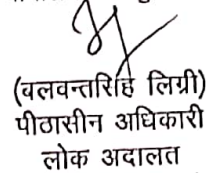 (वलवन्तरिंह लिग्री)
पीठासीन अधिकारी
लोक अदालत